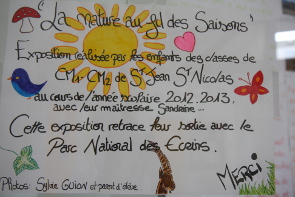 "La Nature au fil des Saisons"
Exposition réalisée par les enfants des classes de
CM1-CM2 de St Jean St Nicolas
au cours de l'année scolaire 2012.2013.
avec leur maîtresse Sandrine...
Cette exposition retrace leur sortie avec le
Parc National des Ecrins.
MERCI
Photos: Sylvie GUION et parent d'élève